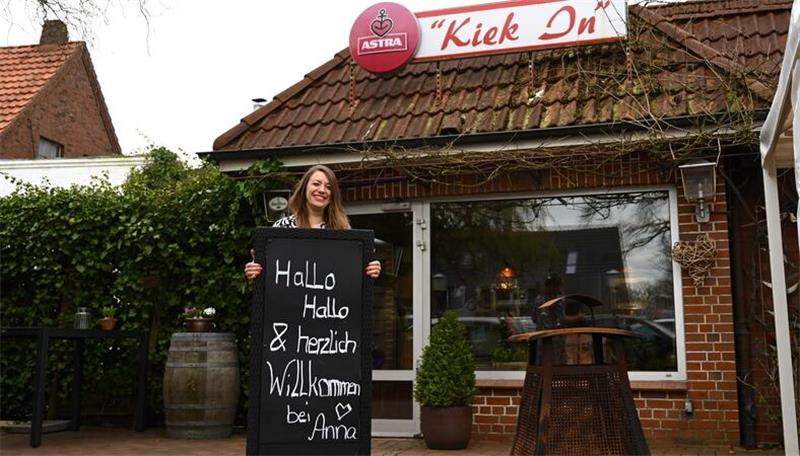 ASTRA
"Kiek In"
Hallo
Hallo
& herzlich
Willkommen
bei
Anna